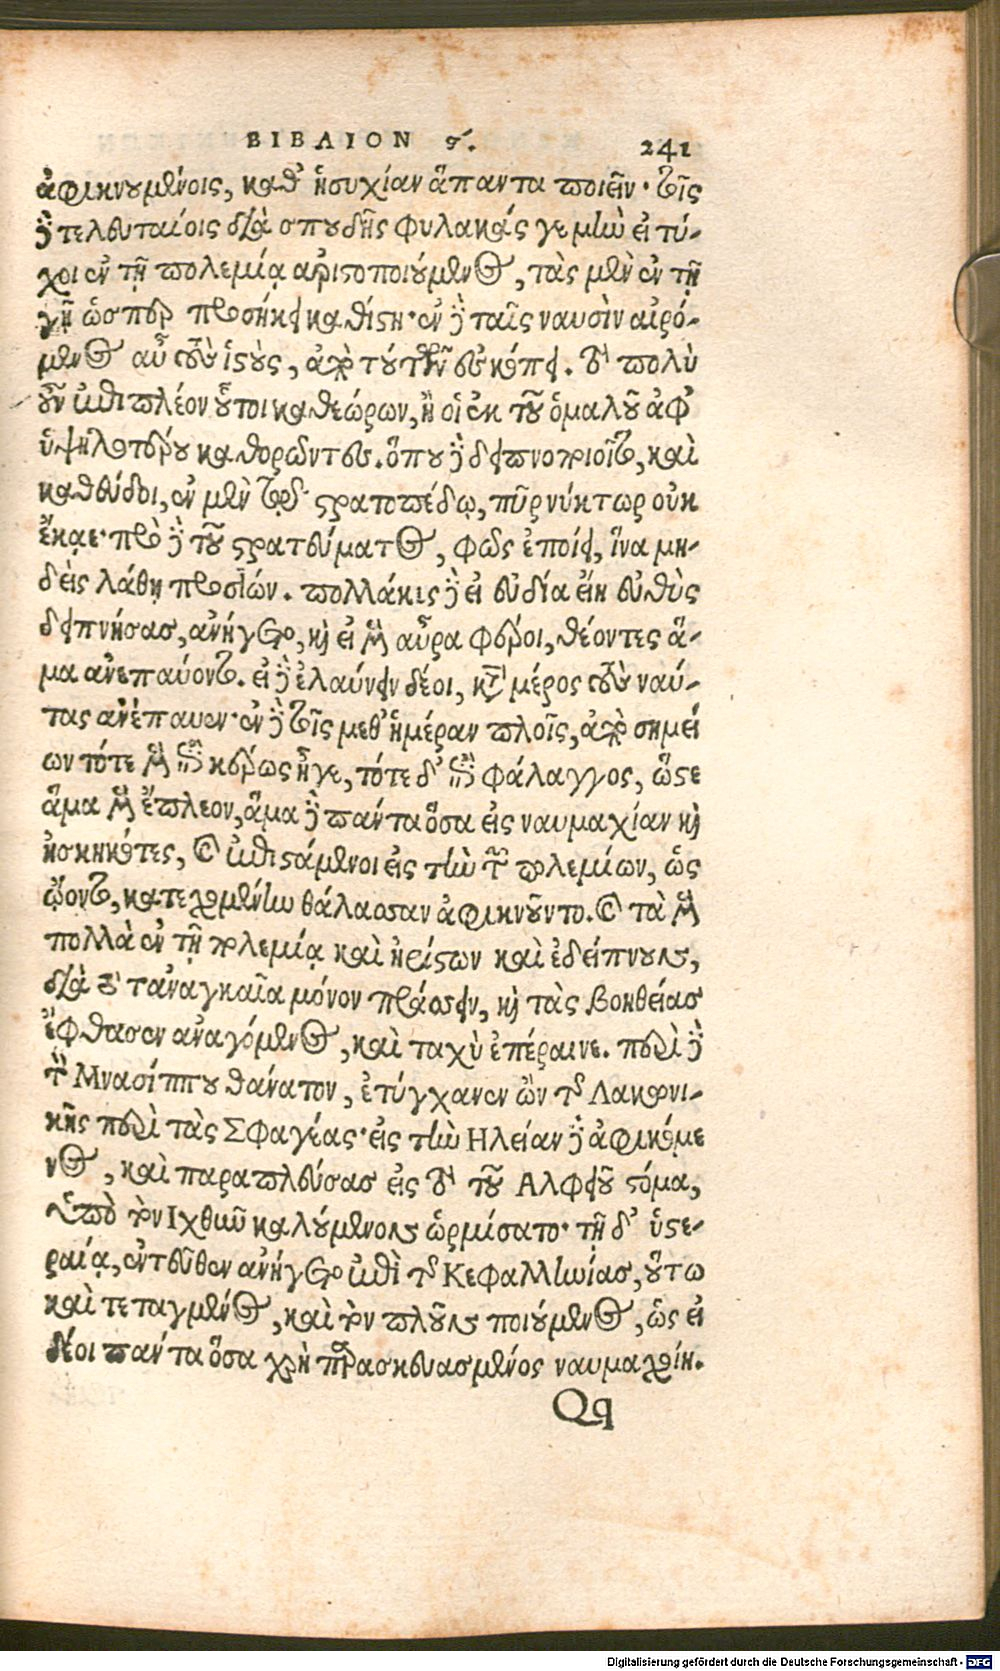 ΒΙΒΛΙΟΝ ϛ. 241
ἀφικνουμένοις, καθ' ἡσυχίαν ἅπαντα ποιεῖν· τοῖς
δὲ τελευταίοις διὰ σπουδῆς φυλακάς γε μὴν εἰ τύ-
χοι ἐν τῇ πολεμίᾳ ἀριστοποιούμενος, τὰς μὲν ἐν τῇ
γῇ ὥσπερ προσήκει καθίστη· ἐν δὲ ταῖς ναυσὶν αἰρό-
μενος αὖ τοὺς ἱστοὺς, ἀπὸ τούτων ἐσκόπει. πολὺ
οὖν ἐπὶ πλέον οὗτοι καθεώρων, ἢ οἱ ἐκ τοῦ ὁμαλοῦ ἀφ'
ὑψηλοτέρου καθορῶντες. ὅπου δὲ δειπνοποιοῖτο, καὶ
καθεύδοι, ἐν μὲν τῷ στρατοπέδῳ, πῦρ νύκτωρ οὐκ
ἔκαε· πρὸ δὲ τοῦ στρατεύματος, φῶς ἐποίει, ἵνα μη-
δεὶς λάθῃ προσιών. πολλάκις δὲ εἰ εὐδία εἴη εὐθὺς
δειπνήσας, ἀνήγετο, καὶ εἰ μὲν αὖρα φέροι, θέοντες ἅ-
μα ἀνεπαύοντο. εἰ δὲ ἐλαύνειν δέοι, κατὰ μέρος τοὺς ναύ-
τας ἀνέπαυεν· ἐν δὲ τοῖς μεθ' ἡμέραν πλοῖς, ἀπὸ σημεί
ων τότε μὲν ἐπὶ κέρως ἦγε, τότε δ' ἐπὶ φάλαγγος, ὥστε
ἅμα μὲν ἔπλεον, ἅμα δὲ πάντα ὅσα εἰς ναυμαχίαν καὶ
ἠσκηκότες, καὶ ἐπιστάμενοι εἰς τὴν τῶν πολεμίων, ὡς
ᾤοντο, κατεχομένην θάλασσαν ἀφικνοῦντο. καὶ τὰ μὲν
πολλὰ ἐν τῇ πολεμίᾳ καὶ ἠρίστων καὶ ἐδείπνουν,
διὰ δὲ τἀναγκαῖα μόνον πράσσειν, καὶ τὰς βοηθείας
ἔφθασεν ἀναγόμενος, καὶ ταχὺ ἐπέραινε. περὶ δὲ
τὸν Μνασίππου θάνατον, ἐτύγχανεν ὢν τῆς Λακωνι-
κῆς περὶ τὰς Σφαγέας· εἰς τὴν Ηλείαν δὲ ἀφικόμε
νος, καὶ παραπλεύσας εἰς τὸ τοῦ Αλφειοῦ στόμα,
ὑπὸ τὸν Ιχθῦν καλούμενον ὡρμίσατο· τῇ δ' ὑστε-
ραίᾳ, ἐντεῦθεν ἀνήγετο ἐπὶ τῆς Κεφαλληνίας, οὕτω
καὶ τεταγμένος, καὶ τὸν πλοῦν ποιούμενος, ὡς εἰ
δέοι πάντα ὅσα χρὴ παρασκευασμένος ναυμαχοίη.
Qq
Digitalisierung gefördert durch die Deutsche Forschungsgemeinschaft - DFG